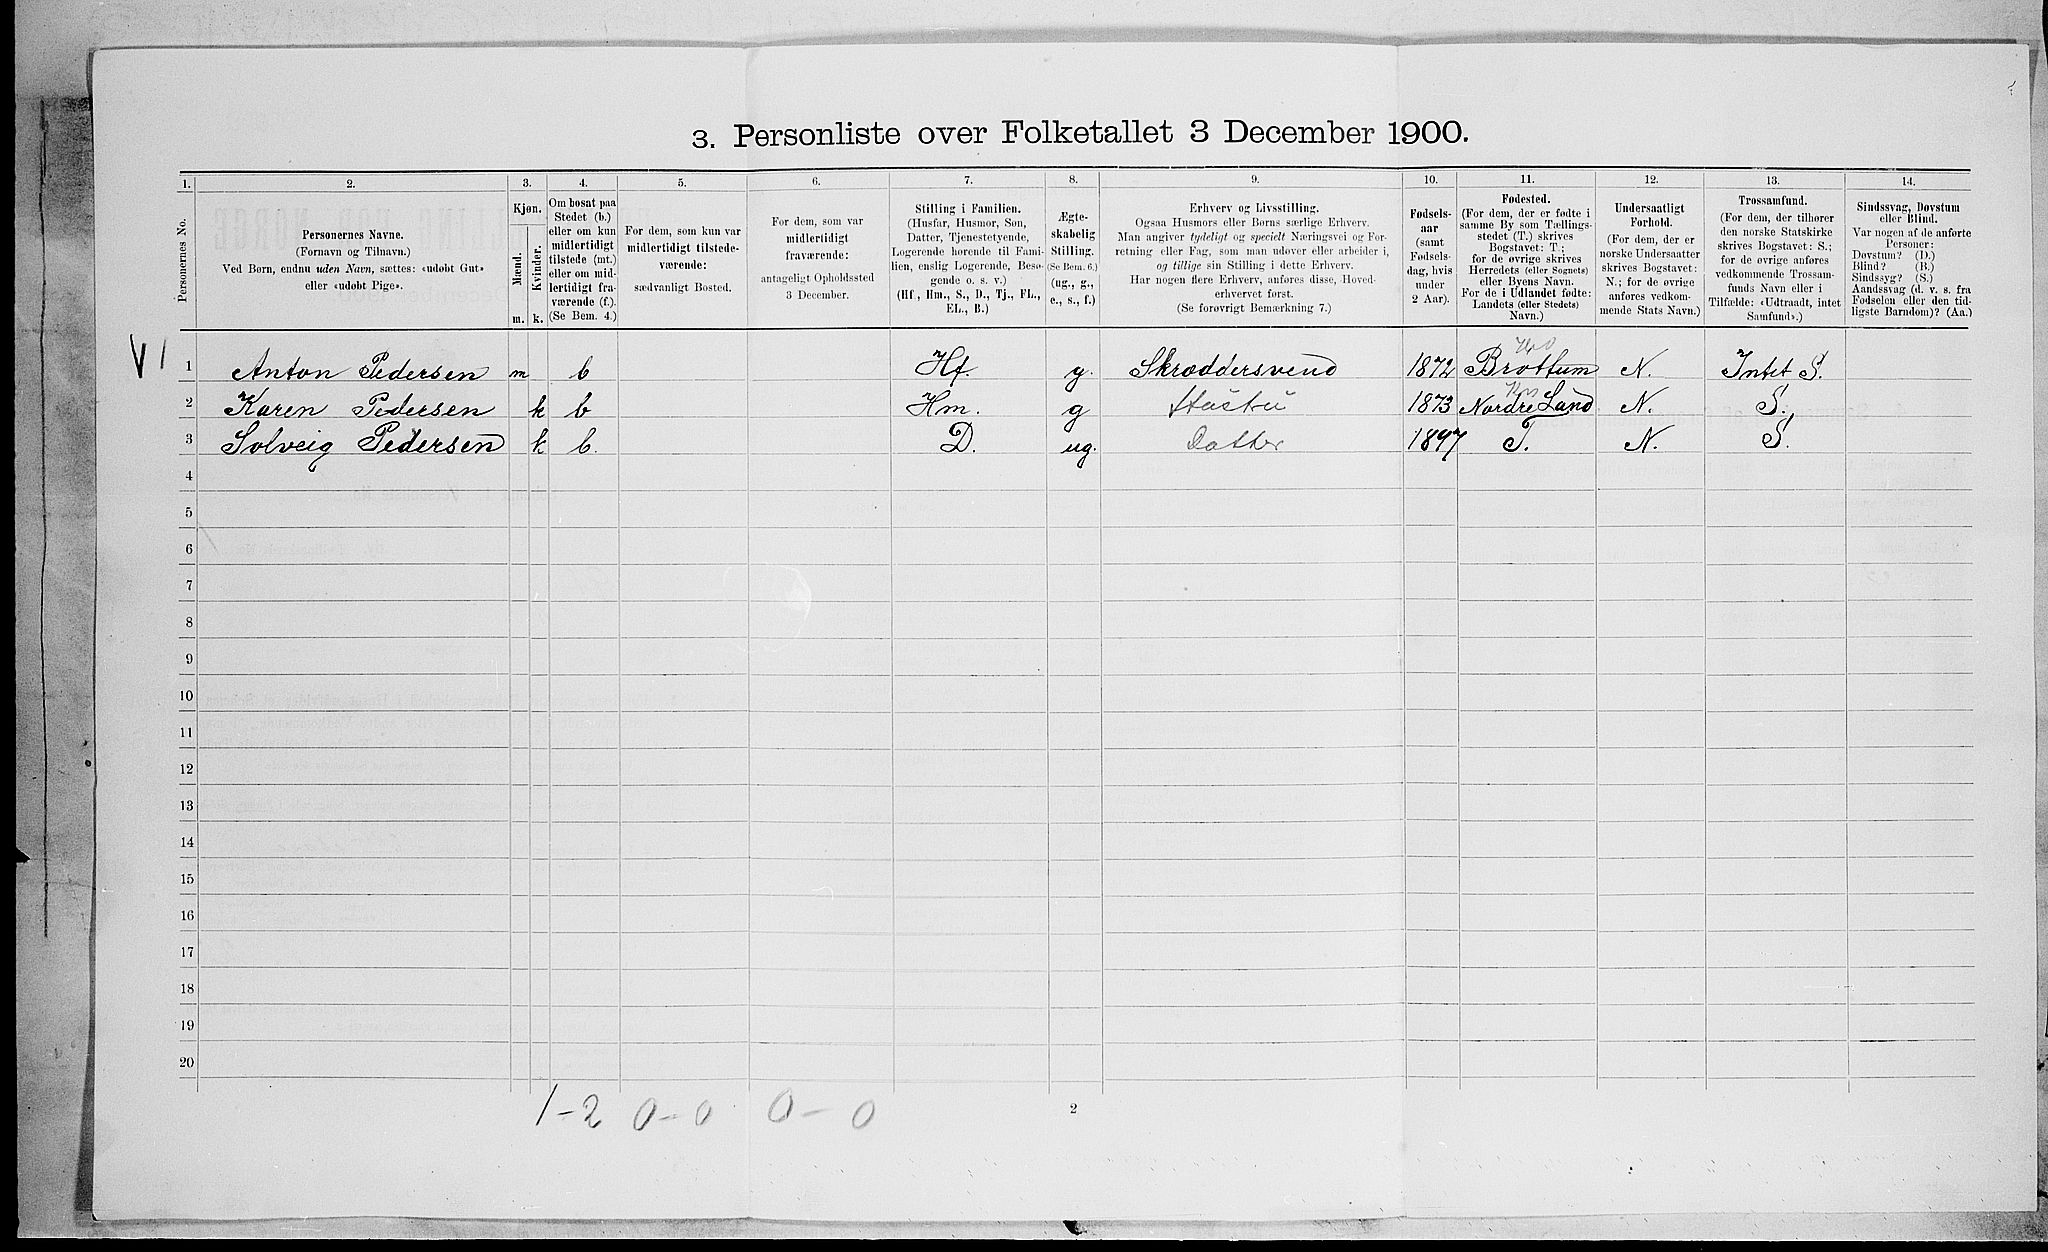 3. Personliste over Folketallet 3 December 1900.
1. 2. 3. 4. 5. 6. 7. 8. 9. 10. 11. 12. 13. 14.
Personernes No.
Personernes Navne.
(Fornavn og Tilnavn.)
Ved Børn, endnu uden Navn, sættes: «udøbt Gut»
eller «udøbt Pige».
Kjøn.
Mænd.
Kvinder.
m. k.
Om bosat paa
Stedet (b.)
eller om kun
midlertidigt
tilstede (mt.)
eller om mid-
lertidigt fra-
værende (f.).
(Se Bem. 4.)
For dem, som kun var
midlertidigt tilstede-
værende:
sædvanligt Bosted.
For dem, som var
midlertidigt
fraværende:
antageligt Opholdssted
3 December.
Stilling i Familien.
(Husfar, Husmor, Søn,
Datter, Tjenestetyende,
Logerende hørende til Fami-
lien, enslig Logerende, Besø-
gende o. s. v.)
(Hf., Hm., S., D., Tj., FL.,
EL., B.)
Ægte-
skabelig
Stilling.
(Se Bem. 6.)
(ug., g.,
e., s., f.)
Erhverv og Livsstilling.
Ogsaa Husmors eller Børns særlige Erhverv.
Man angiver tydeligt og specielt Næringsvei og For-
retning eller Fag, som man udøver eller arbeider i,
og tillige sin Stilling i dette Erhverv.
Har nogen flere Erhverv, anføres disse, Hoved-
erhvervet først.
(Se forøvrigt Bemærkning 7.)
Fødsels-
aar
(samt
Fødsels-
dag, hvis
under
2 Aar).
Fødested.
(For dem, der er fødte i
samme By som Tællings-
stedet (T.) skrives
Bogstavet: T.;
for de øvrige skrives
Herredets (eller Sognets)
eller Byens Navn.
For de i Udlandet fødte:
Landets (eller Stedets)
Navn.)
Undersaatligt
Forhold.
(For dem, der er
norske Undersaatter
skrives Bogstavet:
N.; for de øvrige
anføres vedkom-
mende Stats Navn.)
Trossamfund.
(For dem, der tilhører
den norske Statskirke
skrives Bogstavet: S.;
for de øvrige anføres
vedkommende Trossam-
funds Navn eller i
Tilfælde: «Udtraadt, intet
Samfund».)
Sindssvag, Døvstum
eller Blind.
Var nogen af de anførte
Personer:
Døvstum? (D.)
Blind? (B.)
Sindssyg? (S.)
Aandssvag (d. v. s. fra
Fødselen eller den tid-
ligste Barndom)? (Aa.)
1 Anton Pedersen m b Hf. g. Skræddersvend 1872 Brøttum N. Intet S.
2 Karen Pedersen k b Hm. g 1873 Nordre Land N. S.
3 Solveig Pedersen k b. D. ug. Datter 1897 T. N. S.
4
5
6
7
8
9
10
11
12
13
14
15
16
17
18
19
20
1-2 0-0 0-0
2